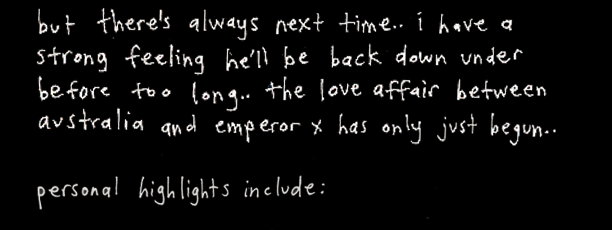 but there's always next time.. i have a
strong feeling he'll be back down under
before too long.. the love affair between
australia and emperor x has only just begun..
personal highlights include: